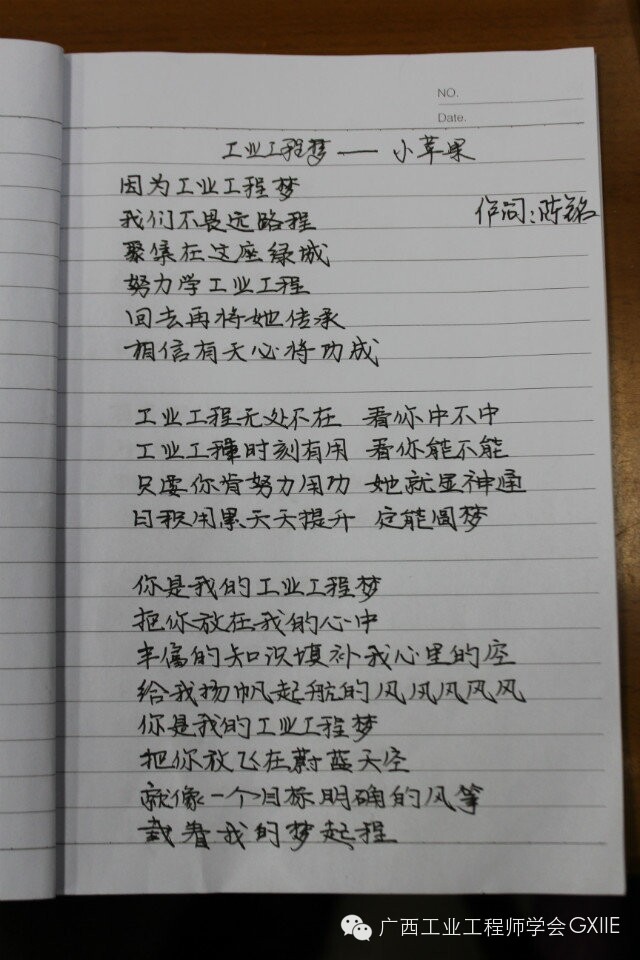 NO.
Date.
工业工程梦——小苹果
作词：陈铭
因为工业工程梦
我们不畏远路程
聚集在这座绿城
努力学工业工程
回去再将她传承
相信有天必将功成
工业工程无处不在 看你中不中
工业工程时刻有用 看你能不能
只要你肯努力用功 她就显神通
日积月累天天提升 定能圆梦
你是我的工业工程梦
把你放在我的心中
丰富的知识填补我心里的空
给我扬帆起航的风风风风风
你是我的工业工程梦
把你放飞在蔚蓝天空
就像一个目标明确的风筝
载着我的梦起程
广西工业工程师学会GXIIE